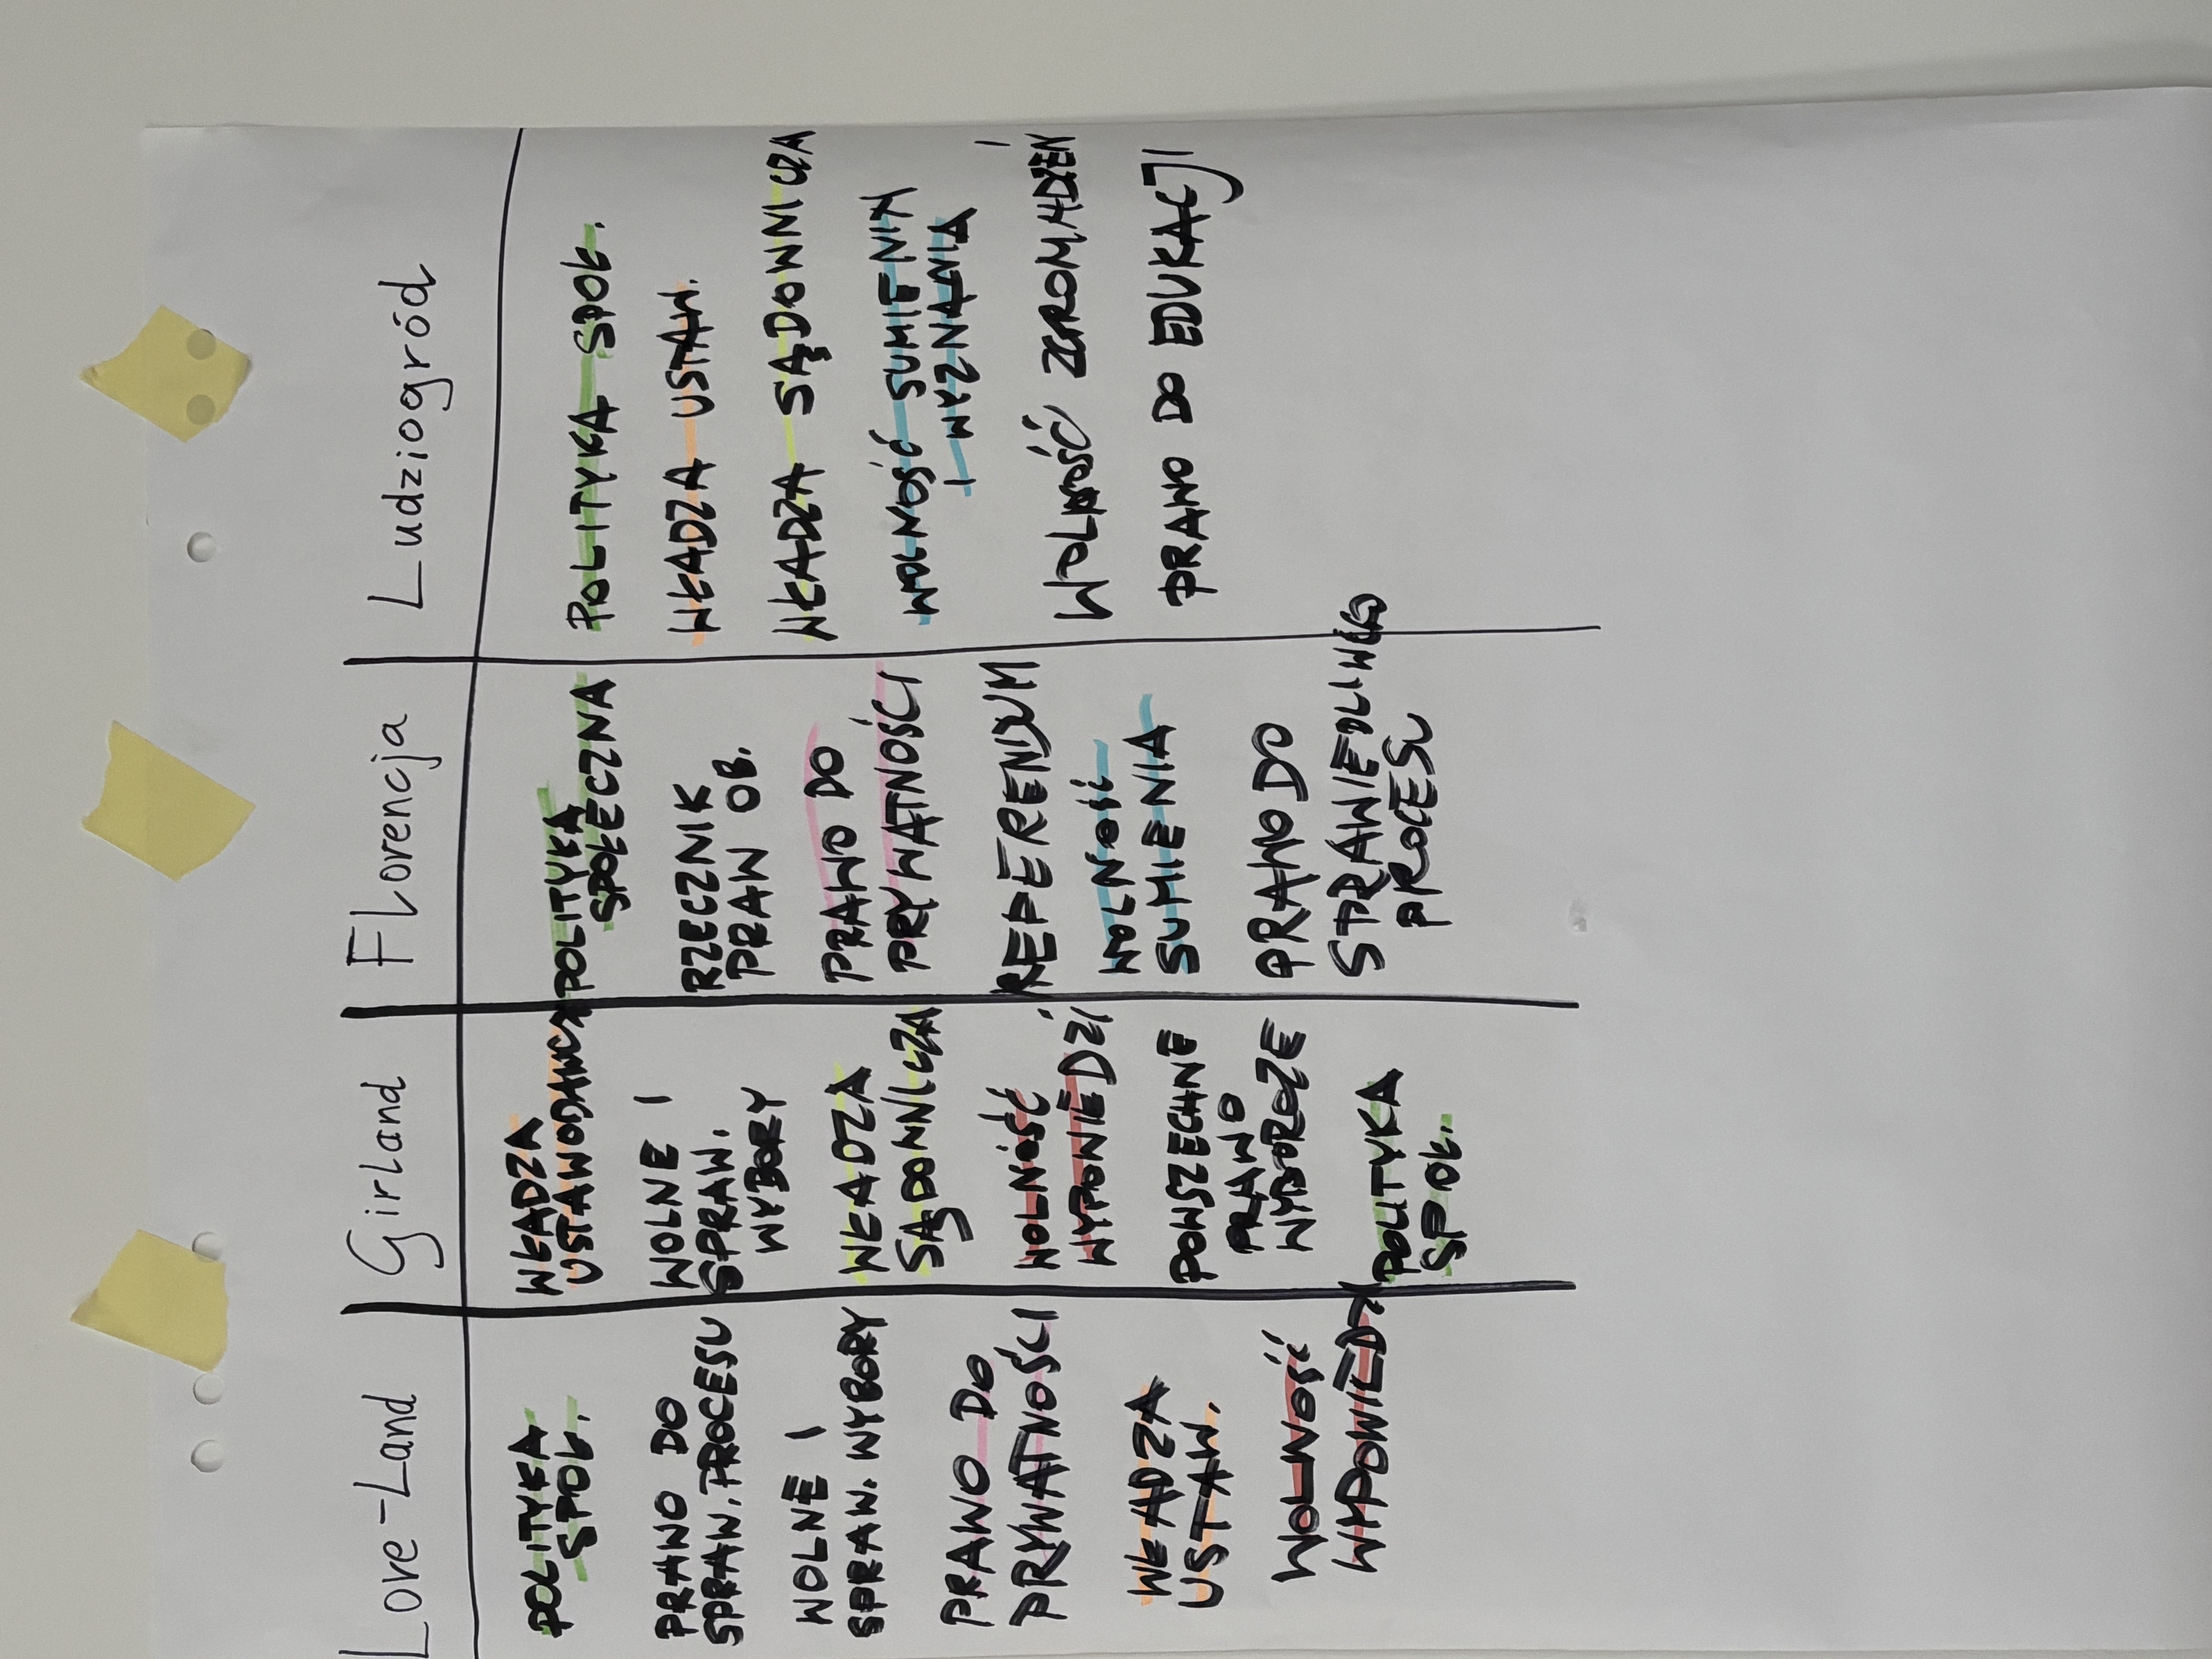 Love-Land
Girland
Florencja
Ludziogród
POLITYKA
SPOŁ.
PRAWO DO
SPRAW. PROCESU
WOLNE I
SPRAW. WYBORY
PRAWO DO
PRYWATNOŚCI
WŁADZA
USTAW.
WOLNOŚĆ
WYPOWIEDZI
WŁADZA
USTAWODAWCZA
WOLNE I
SPRAW.
WYBORY
WŁADZA
SĄDOWNICZA
WOLNOŚĆ
WYPOWIEDZI
POWSZECHNE
PRAWO
WYBORCZE
POLITYKA
SPOŁ.
POLITYKA
SPOŁECZNA
RZECZNIK
PRAW OB.
PRAWO DO
PRYWATNOŚCI
REFERENDUM
WOLNOŚĆ
SUMIENIA
PRAWO DO
SPRAWIEDLIWEGO
PROCESU
POLITYKA SPOŁ.
WŁADZA USTAW.
WŁADZA SĄDOWNICZA
WOLNOŚĆ SUMIENIA
I WYZNANIA
WOLNOŚĆ ZGROMADZEŃ
PRAWO DO EDUKACJI